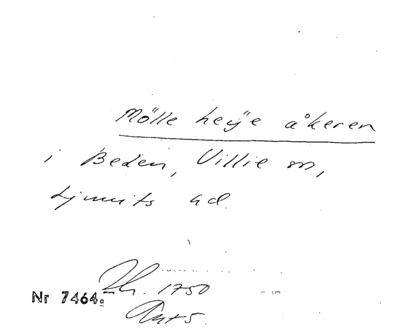 Mölle heÿe åkeren
i Beden, Villie sn,
Ljunits hd
1750
Nr 7464